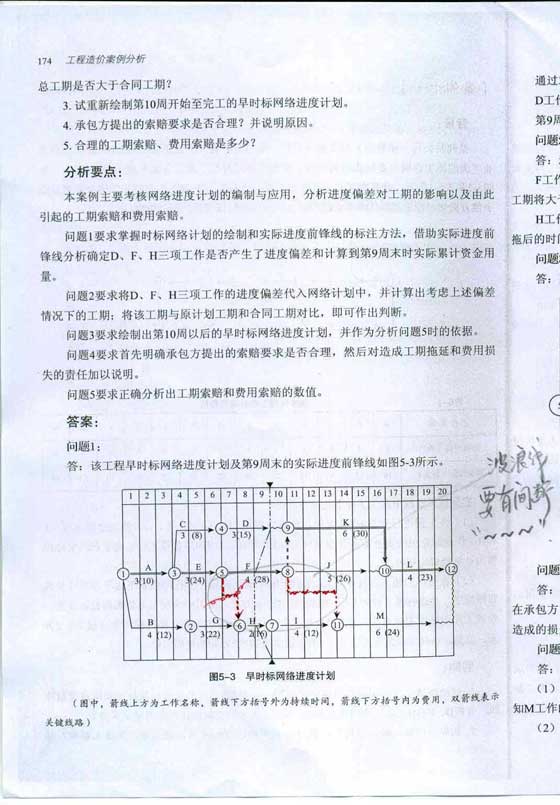 174 工程造价案例分析
总工期是否大于合同工期？
3. 试重新绘制第10周开始至完工的早时标网络进度计划。
4. 承包方提出的索赔要求是否合理？并说明原因。
5. 合理的工期索赔、费用索赔是多少？
分析要点：
本案例主要考核网络进度计划的编制与应用，分析进度偏差对工期的影响以及由此
引起的工期索赔和费用索赔。
问题1要求掌握时标网络计划的绘制和实际进度前锋线的标注方法，借助实际进度前
锋线分析确定D、F、H三项工作是否产生了进度偏差和计算到第9周末时实际累计资金用
量。
问题2要求将D、F、H三项工作的进度偏差代入网络计划中，并计算出考虑上述偏差
情况下的工期；将该工期与原计划工期和合同工期对比，即可作出判断。
问题3要求绘制出第10周以后的早时标网络进度计划，并作为分析问题5时的依据。
问题4要求首先明确承包方提出的索赔要求是否合理，然后对造成工期拖延和费用损
失的责任加以说明。
问题5要求正确分析出工期索赔和费用索赔的数值。
答案：
问题1：
答：该工程早时标网络进度计划及第9周末的实际进度前锋线如图5-3所示。
波浪线
要有间断
1 2 3 4 5 6 7 8 9 10 11 12 13 14 15 16 17 18 19 20
C 3 (8) 4 D 3(15) 9 K 6 (30)
1 A 3(10) 3 E 3(24) 5 F 4 (28) 8 J 5 (26) 10 L 4 (23) 12
B 4 (12) 2 G 3(22) 6 H 2(16) 7 I 4 (12) 11 M 6 (24)
图5-3 早时标网络进度计划
（图中，箭线上方为工作名称，箭线下方括号外为持续时间，箭线下方括号内为费用，双箭线表示
关键线路）
通过
D工作
第9周
问题
答：
F工作
工期将大于
H工作
拖后的时间
问题
答：
问题
答：
在承包方
造成的损
问题
答：
（1）
知M工作
（2）